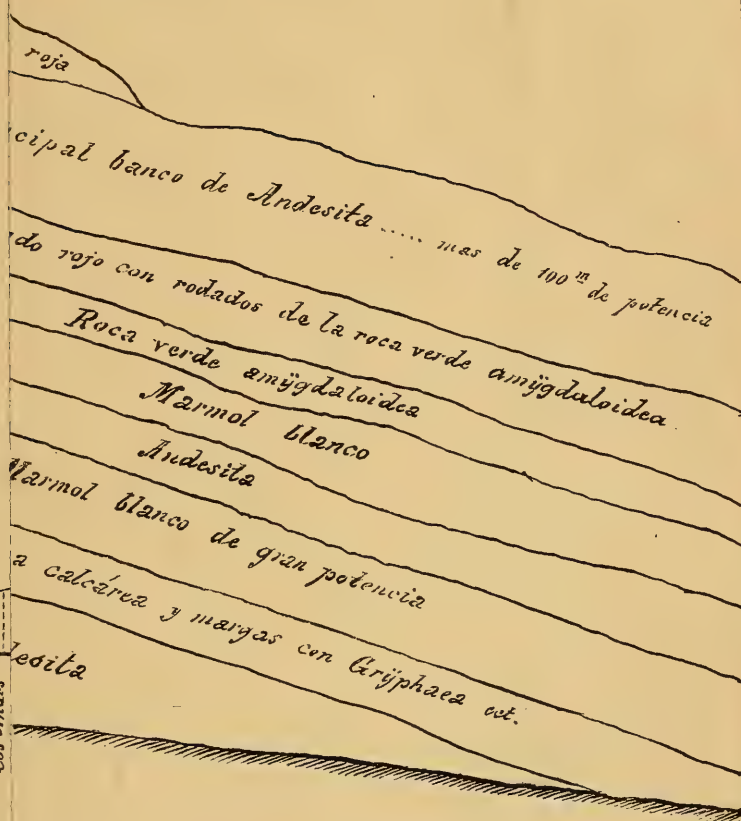 roja
cipal banco de Andesita ..... mas de 100 m de potencia
do rojo con rodados de la roca verde amÿgdaloidea
Roca verde amÿgdaloidea
Marmol blanco
Andesita
Marmol blanco de gran potencia
a calcárea y margas con Grÿphaea ect.
desita